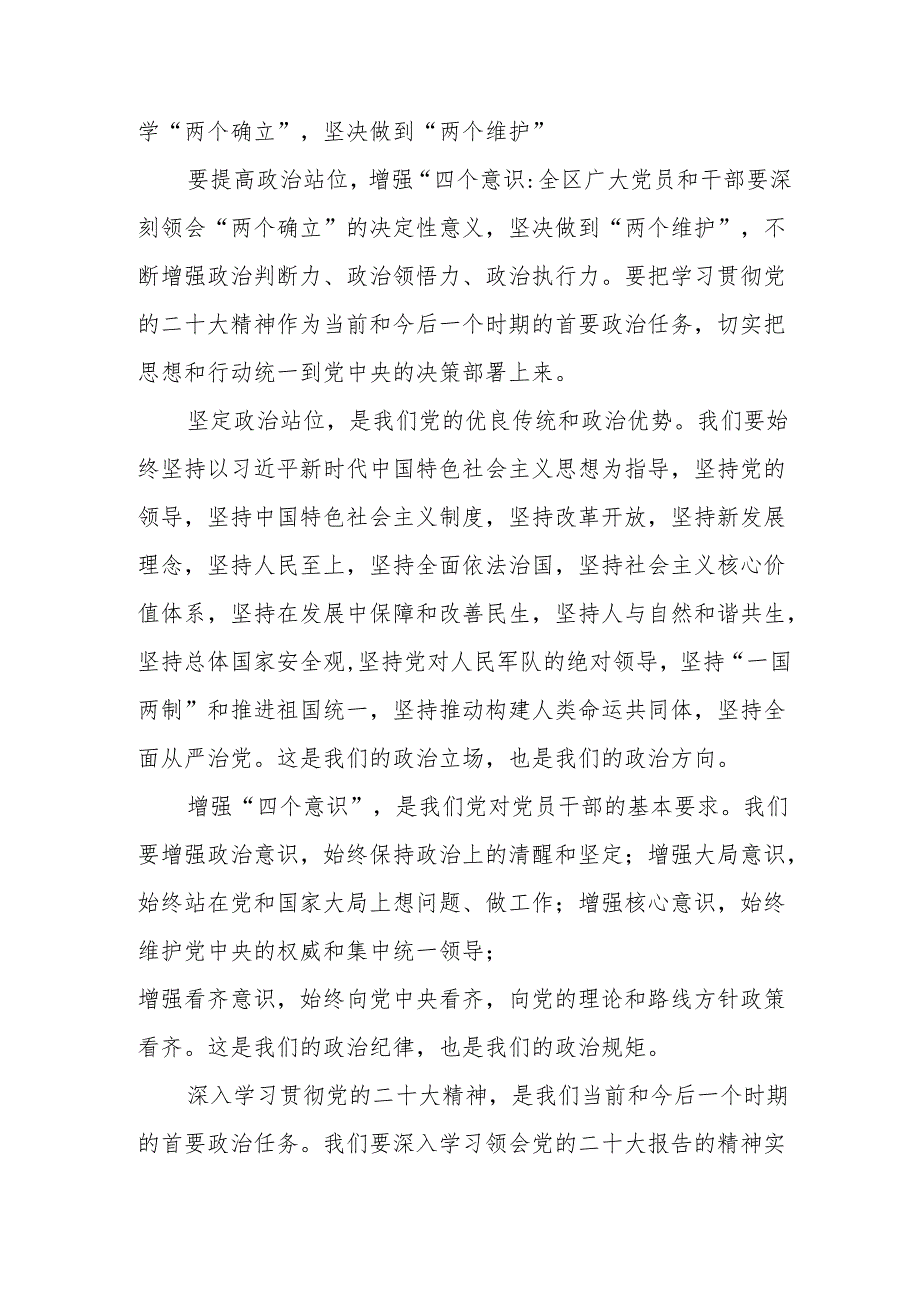 学“两个确立”，坚决做到“两个维护”
要提高政治站位，增强“四个意识:全区广大党员和干部要深
刻领会“两个确立”的决定性意义，坚决做到“两个维护”，不
断增强政治判断力、政治领悟力、政治执行力。要把学习贯彻党
的二十大精神作为当前和今后一个时期的首要政治任务，切实把
思想和行动统一到党中央的决策部署上来。
坚定政治站位，是我们党的优良传统和政治优势。我们要始
终坚持以习近平新时代中国特色社会主义思想为指导，坚持党的
领导，坚持中国特色社会主义制度，坚持改革开放，坚持新发展
理念，坚持人民至上，坚持全面依法治国，坚持社会主义核心价
值体系，坚持在发展中保障和改善民生，坚持人与自然和谐共生，
坚持总体国家安全观,坚持党对人民军队的绝对领导，坚持“一国
两制”和推进祖国统一，坚持推动构建人类命运共同体，坚持全
面从严治党。这是我们的政治立场，也是我们的政治方向。
增强“四个意识”，是我们党对党员干部的基本要求。我们
要增强政治意识，始终保持政治上的清醒和坚定；增强大局意识，
始终站在党和国家大局上想问题、做工作；增强核心意识，始终
维护党中央的权威和集中统一领导；
增强看齐意识，始终向党中央看齐，向党的理论和路线方针政策
看齐。这是我们的政治纪律，也是我们的政治规矩。
深入学习贯彻党的二十大精神，是我们当前和今后一个时期
的首要政治任务。我们要深入学习领会党的二十大报告的精神实